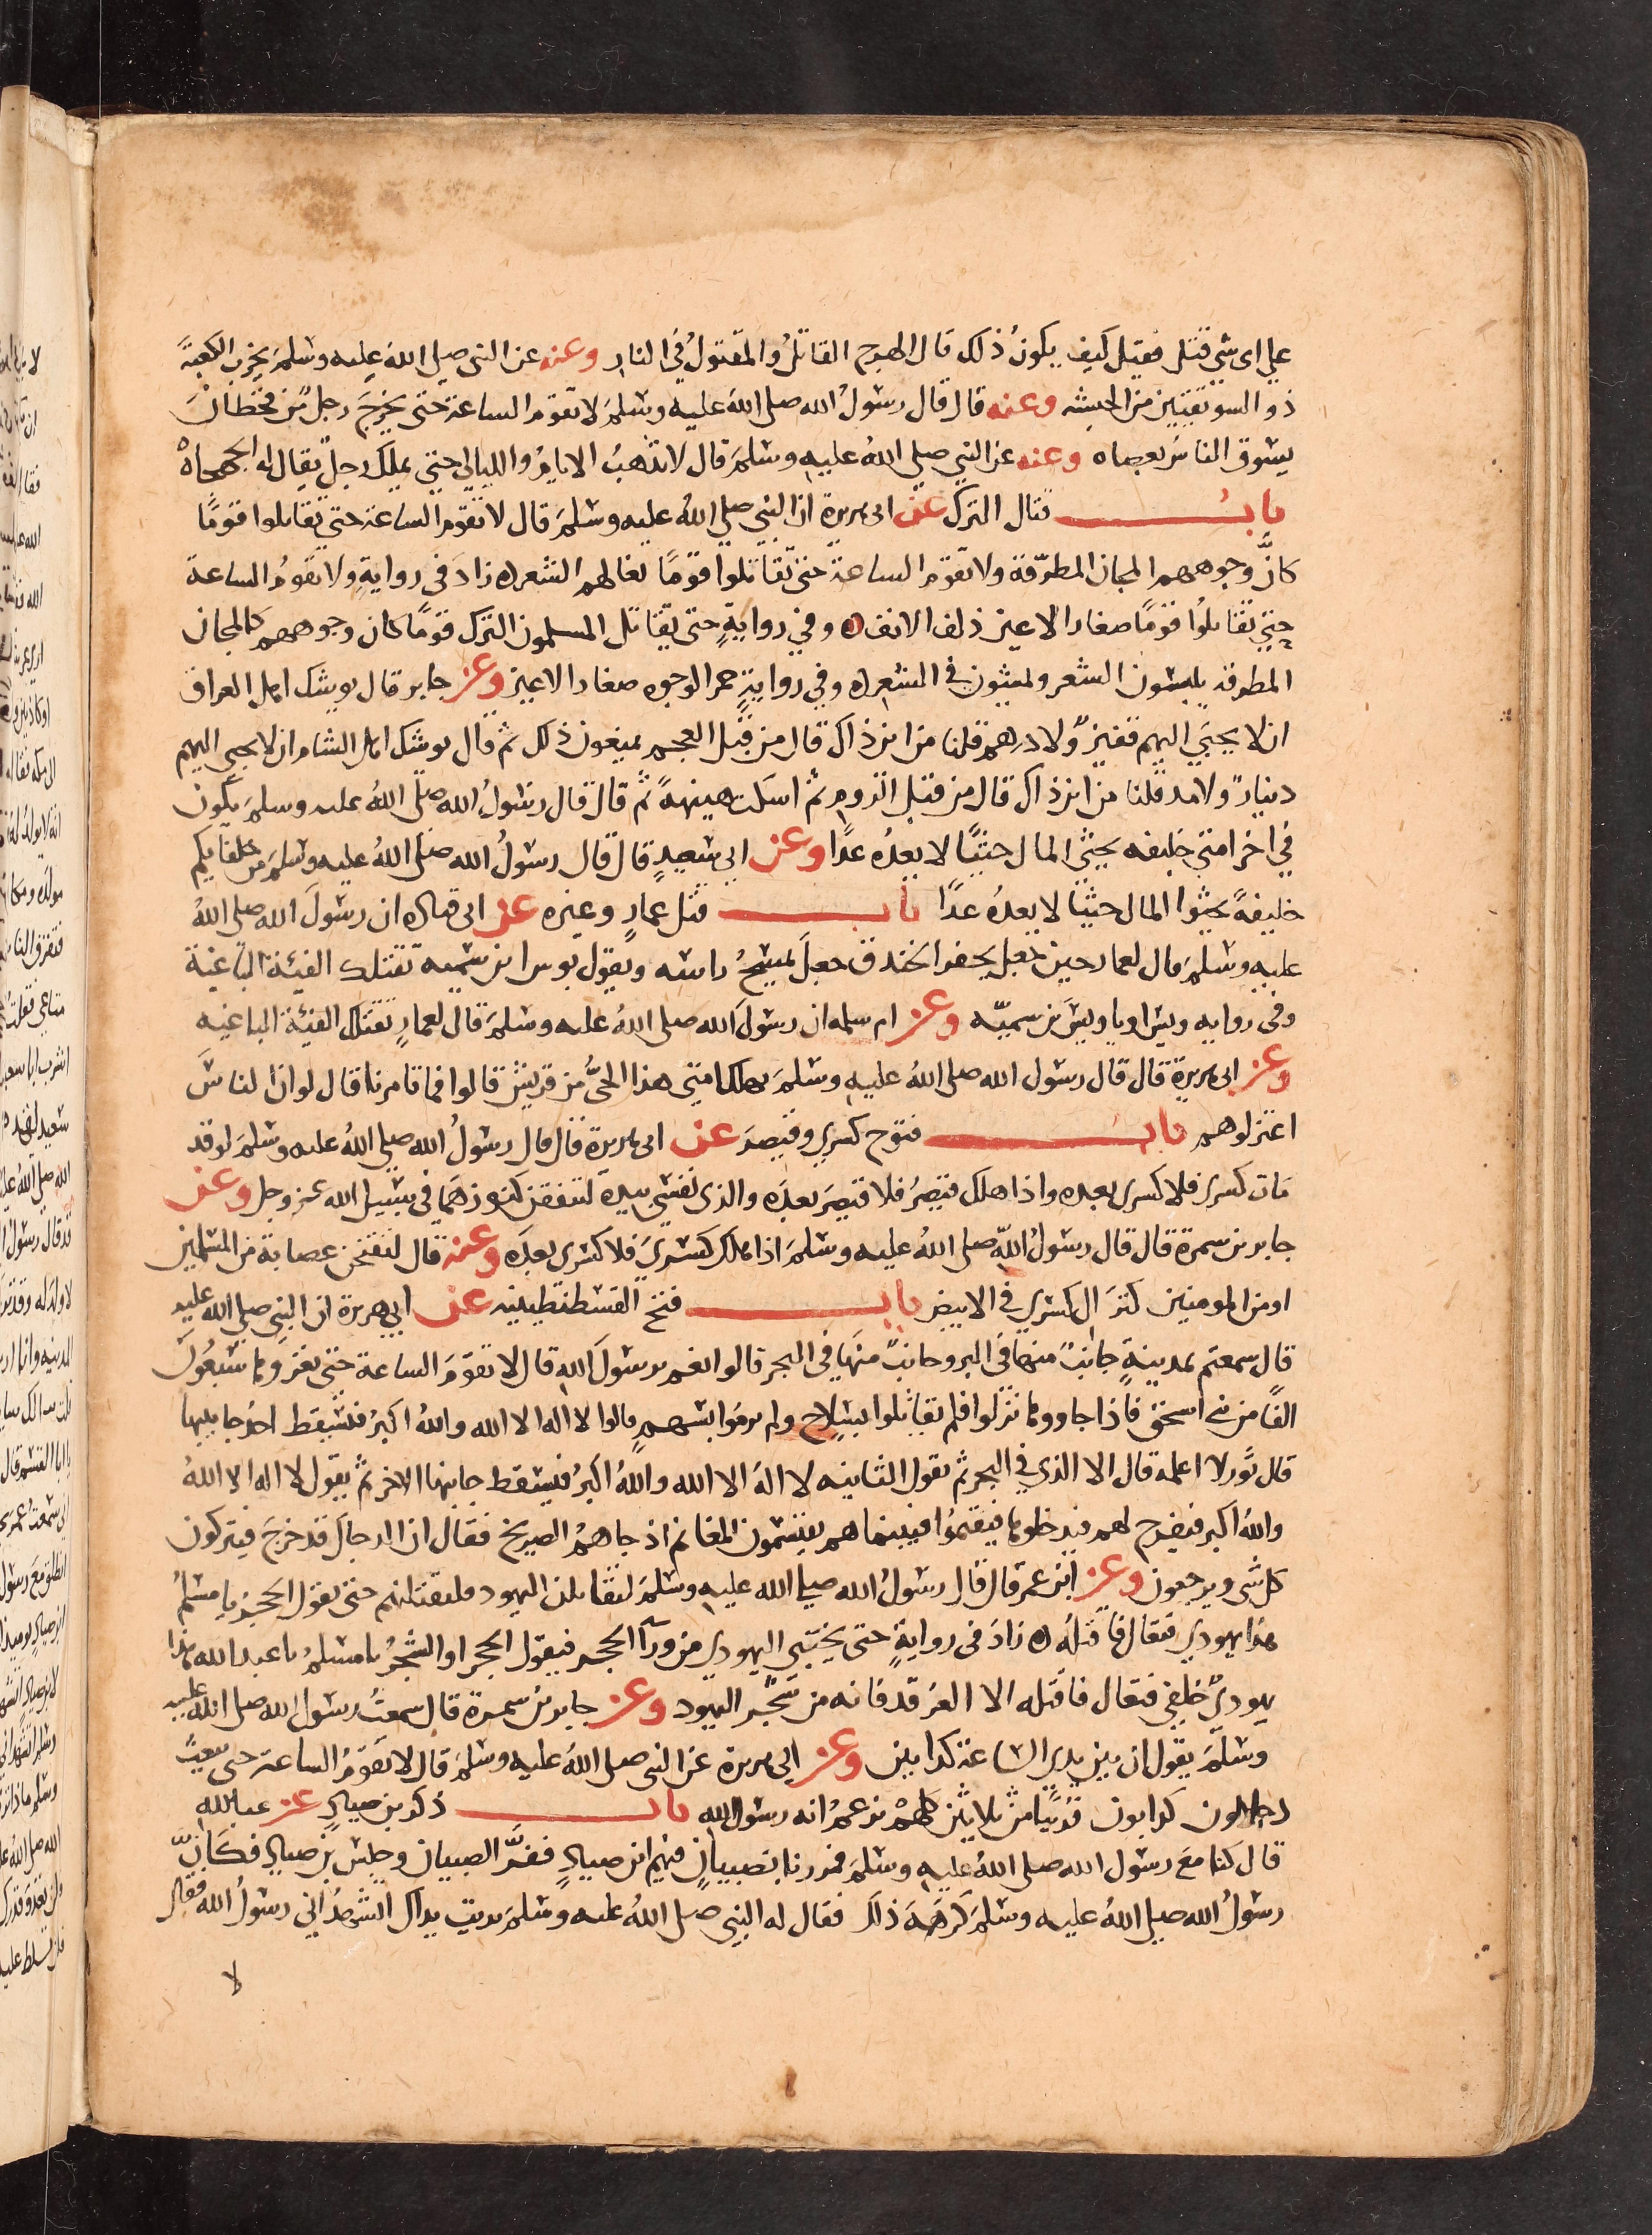 على اى شي قتل فقيل كيف يكون ذلك قال الهرج القاتل والمقتول في النار وعنه عن النبي صلى الله عليه وسلم يخرب الكعبة
ذو السويقتين من الحبشه وعنه قال قال رسول الله صلى الله عليه وسلم لا تقوم الساعة حتى يخرج رجل من قحطان
يسوق الناس بعصاه وعنه عن النبي صلى الله عليه وسلم قال لا تذهب الايام والليالي حتى يملك رجل يقال له الجهجاه
باب قتال الترك عن ابى هريرة ان النبي صلى الله عليه وسلم قال لا تقوم الساعة حتى تقاتلوا قومًا
كانّ وجوههم المجان المطرّقة ولا تقوم الساعة حتى تقاتلوا قومًا نعالهم الشعر زاد في رواية ولا تقوم الساعة
حتى تقاتلوا قومًا صغار الاعين ذلف الانف وفي رواية حتى يقاتل المسلمون الترك قومًا كان وجوههم كالمجان
المطرقه يلبسون الشعر ويمشون في الشعر وفي رواية حمر الوجوه صغار الاعين وعن جابر قال يوشك اهل العراق
ان لا يجبي اليهم قفيز ولا درهم قلنا من اين ذاك قال من قبل العجم يمنعون ذلك ثم قال يوشك اهل الشام ان لا يجبي اليهم
دينار ولا مد قلنا من اين ذاك قال من قبل الروم ثم اسكت هينهة ثم قال قال رسول الله صلى الله عليه وسلم يكون
في اخر امتي خليفه يحثي المال حثيًا لا يعده عدًا وعن ابي سعيد قال قال رسول الله صلى الله عليه وسلم من خلفايكم
خليفة يحثوا المال حثيا لا يعده عدًا باب قتل عمار وغيره عن ابي قتاده ان رسول الله صلى الله
عليه وسلم قال لعمار حين جعل يحفر الخندق جعل يمسح راسه ويقول بوس ابن سميه تقتلك الفيئة الباغية
وفي روايه ويس او يا ويس بن سميّه وعن ام سلمه ان رسول الله صلى الله عليه وسلم قال لعمار تقتلك الفيئة الباغيه
وعن ابى هريرة قال قال رسول الله صلى الله عليه وسلم يهلك امتي هذا الحيّ من قريش قالوا فما تامرنا قال لو ان الناس
اعتزلوهم باب فتوح كسرى وقيصر عن ابى هريرة قال قال رسول الله صلى الله عليه وسلم لو قد
مات كسرى فلا كسرى بعده واذا هلك قيصر فلا قيصر بعده والذي نفسي بيده لتنفقن كنوزهما في سبيل الله عز وجل وعن
جابر بن سمرة قال قال رسول الله صلى الله عليه وسلم اذا هلك كسرى فلا كسرى بعده وعنه قال لتفتحن عصابة من المسلمين
او من المومنين كنز ال كسرى في الابيض باب فتح القسطنطينيه عن ابي هريرة ان النبي صلى الله عليه
قال سمعتم بمدينة جانب منها في البر وجانب منها في البحر قالوا نعم يرسول الله قال لا تقوم الساعة حتى يغزوها سبعون
الفًا من بني اسحق فاذا جاووها نزلوا فلم يقاتلوا بسلاح ولم يرموا بسهم قالوا لا اله الا الله والله اكبر فيسقط احد جانبيها
قال ثور لا اعلمه قال الا الذي في البحر ثم يقول الثانيه لا اله الا الله والله اكبر فيسقط جانبها الاخر ثم يقول لا اله الا الله
والله اكبر فيفرج لهم فيدخلوها فيغنموا فبينما هم يقتسمون المغانم اذ جاهم الصريخ فقال ان الدجال قد خرج فيتركون
كل شي ويرجعون وعن ابن عمر قال قال رسول الله صلى الله عليه وسلم لتقاتلن اليهود فلتقتلنهم حتى يقول الحجر يا مسلم
هذا يهودي فتعال فاقتله زاد في رواية حتى يختبي اليهودي من ورآ الحجر فيقول الحجر او الشجر يا مسلم يا عبد الله هذا
يهودي خلفي فتعال فاقتله الا الغرقد فانه من شجر اليهود وعن جابر بن سمرة قال سمعت رسول الله صلى الله عليه
وسلم يقول ان بين يدي الساعة كذابين وعن ابي هريرة عن النبي صلى الله عليه وسلم قال لا تقوم الساعة حتى يبعث
دجالون كذابون قريبًا من ثلاثين كلهم يزعم انه رسول الله باب ذكر بن صياد عن عبد الله
قال كنا مع رسول الله صلى الله عليه وسلم فمررنا بصبيان فيهم ابن صياد ففرّ الصبيان وجلس بن صياد فكانّ
رسول الله صلى الله عليه وسلم كره ذلك فقال له النبي صلى الله عليه وسلم تربت يداك اتشهد اني رسول الله فقال
لا